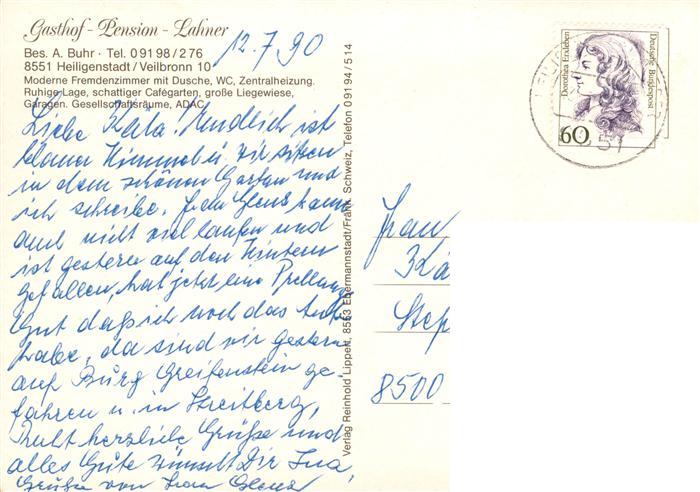 Gasthof - Pension - Lahner
Bes. A. Buhr · Tel. 0 91 98 / 2 76
8551 Heiligenstadt / Veilbronn 10
Moderne Fremdenzimmer mit Dusche, WC, Zentralheizung.
Ruhige Lage, schattiger Cafégarten, große Liegewiese,
Garagen. Gesellschaftsräume, ADAC
12.7.90
Liebe Käta! Endlich ist
blauer Himmel u. wir sitzen
in dem schönen Garten und
ich schreibe. Frau kann
auch nicht viel laufen und
ist gestern auf den Hintern
gefallen, hat jetzt eine Prellung
Gut daß ich noch das Auto
habe, da sind wir gestern
auf Burg Greifenstein ge
fahren u. in Streitberg,
Recht herzliche Grüße und
alles Gute wünscht Dir Ina,
Grüße von Frau
Verlag Reinhold Lippert, 8553 Ebermannstadt/Fränk. Schweiz, Telefon 0 91 94 / 5 14
Dorothea Erxleben
Deutsche Bundespost
60
Frau
Kä
Step
8500